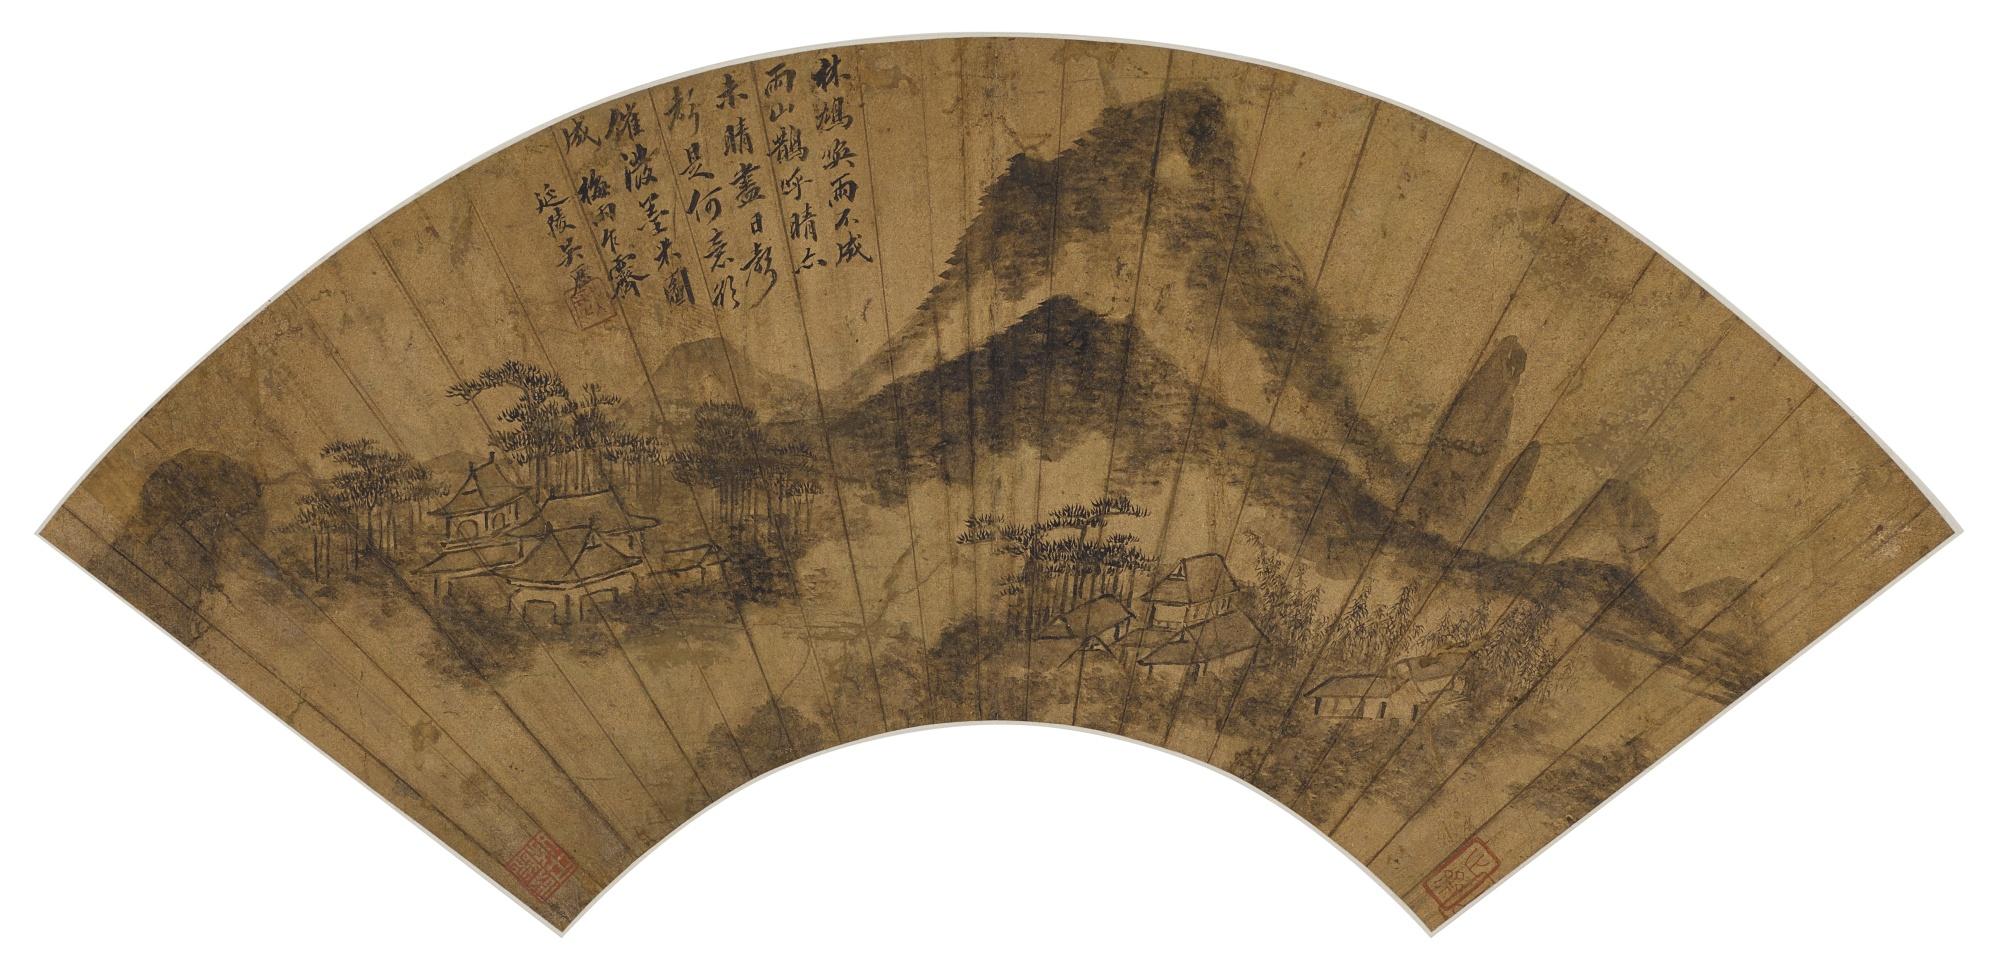 林鳩喚雨不成
雨山鵲呼晴亦
未晴盡日聲
聲是何意欲
催潑墨米圖
成 梅雨乍霽
延陵吳歷